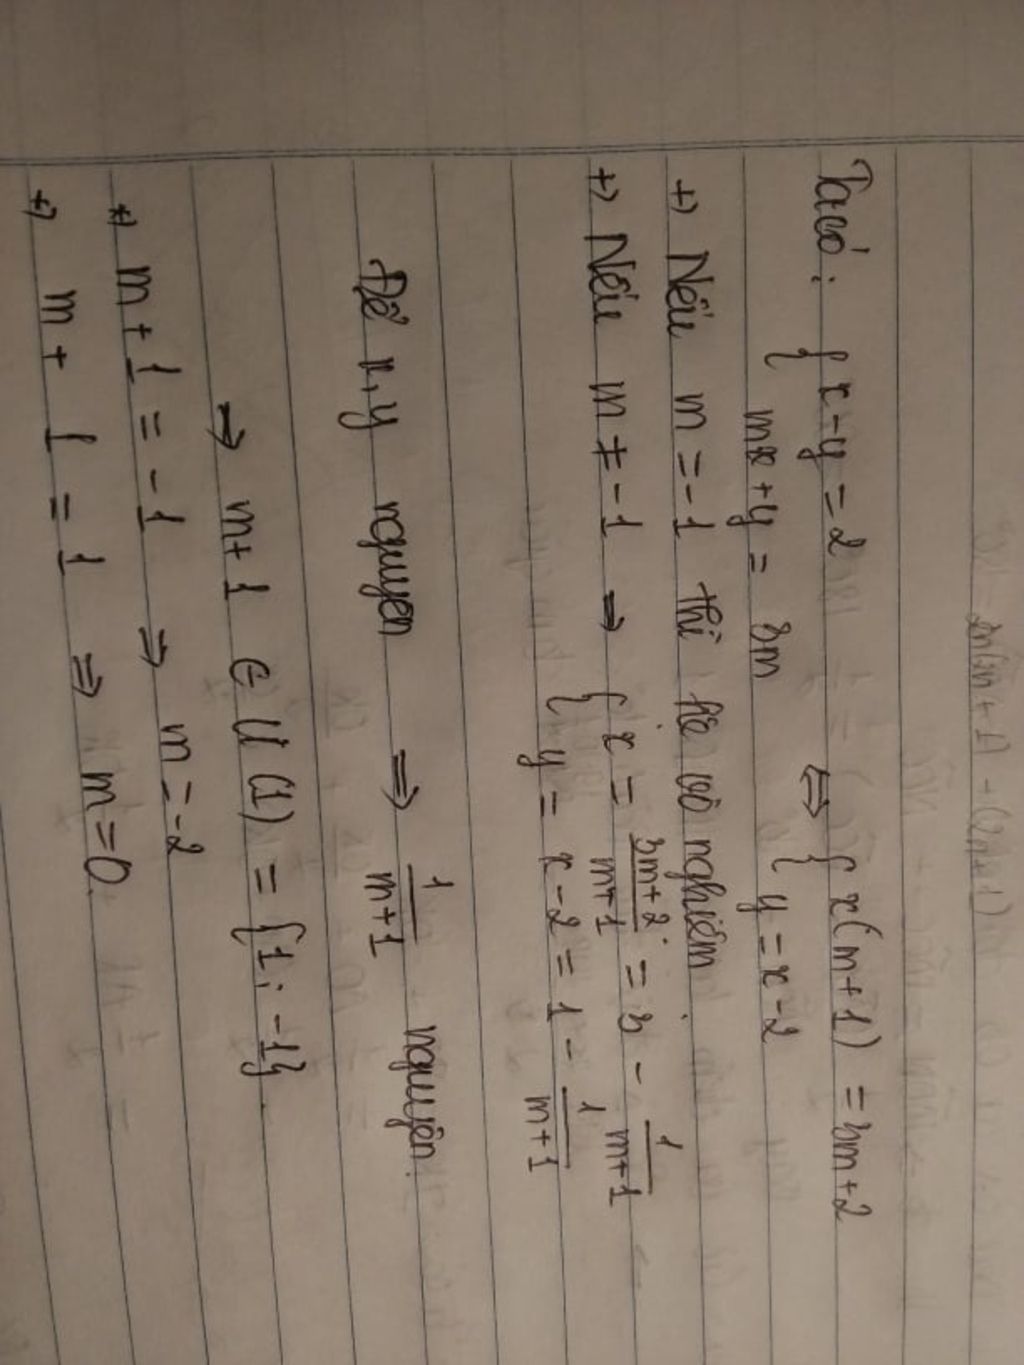 Ta có: { x - y = 2 ⇔ { x(m + 1) = 3m + 2
mx + y = 3m y = x - 2
+) Nếu m = -1 thì hệ vô nghiệm.
+) Nếu m ≠ -1 ⇒ { x = 3m+2/m+1 = 3 - 1/m+1
y = x - 2 = 1 - 1/m+1
Để x, y nguyên ⇒ 1/m+1 nguyên.
⇒ m + 1 ∈ Ư(1) = {1; -1}
+) m + 1 = -1 ⇒ m = -2
+) m + 1 = 1 ⇒ m = 0.